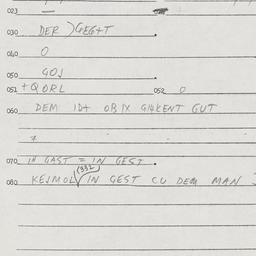 023
030 DER )GEG+T .
040 O
050 GOJ
051 +QORL 052 O
060 DEM ID+ OB IX GI4KENT GUT
070 IN GAST = IN GEST .
(332)
080 KEJMOL IN GEST CU DEM MAN